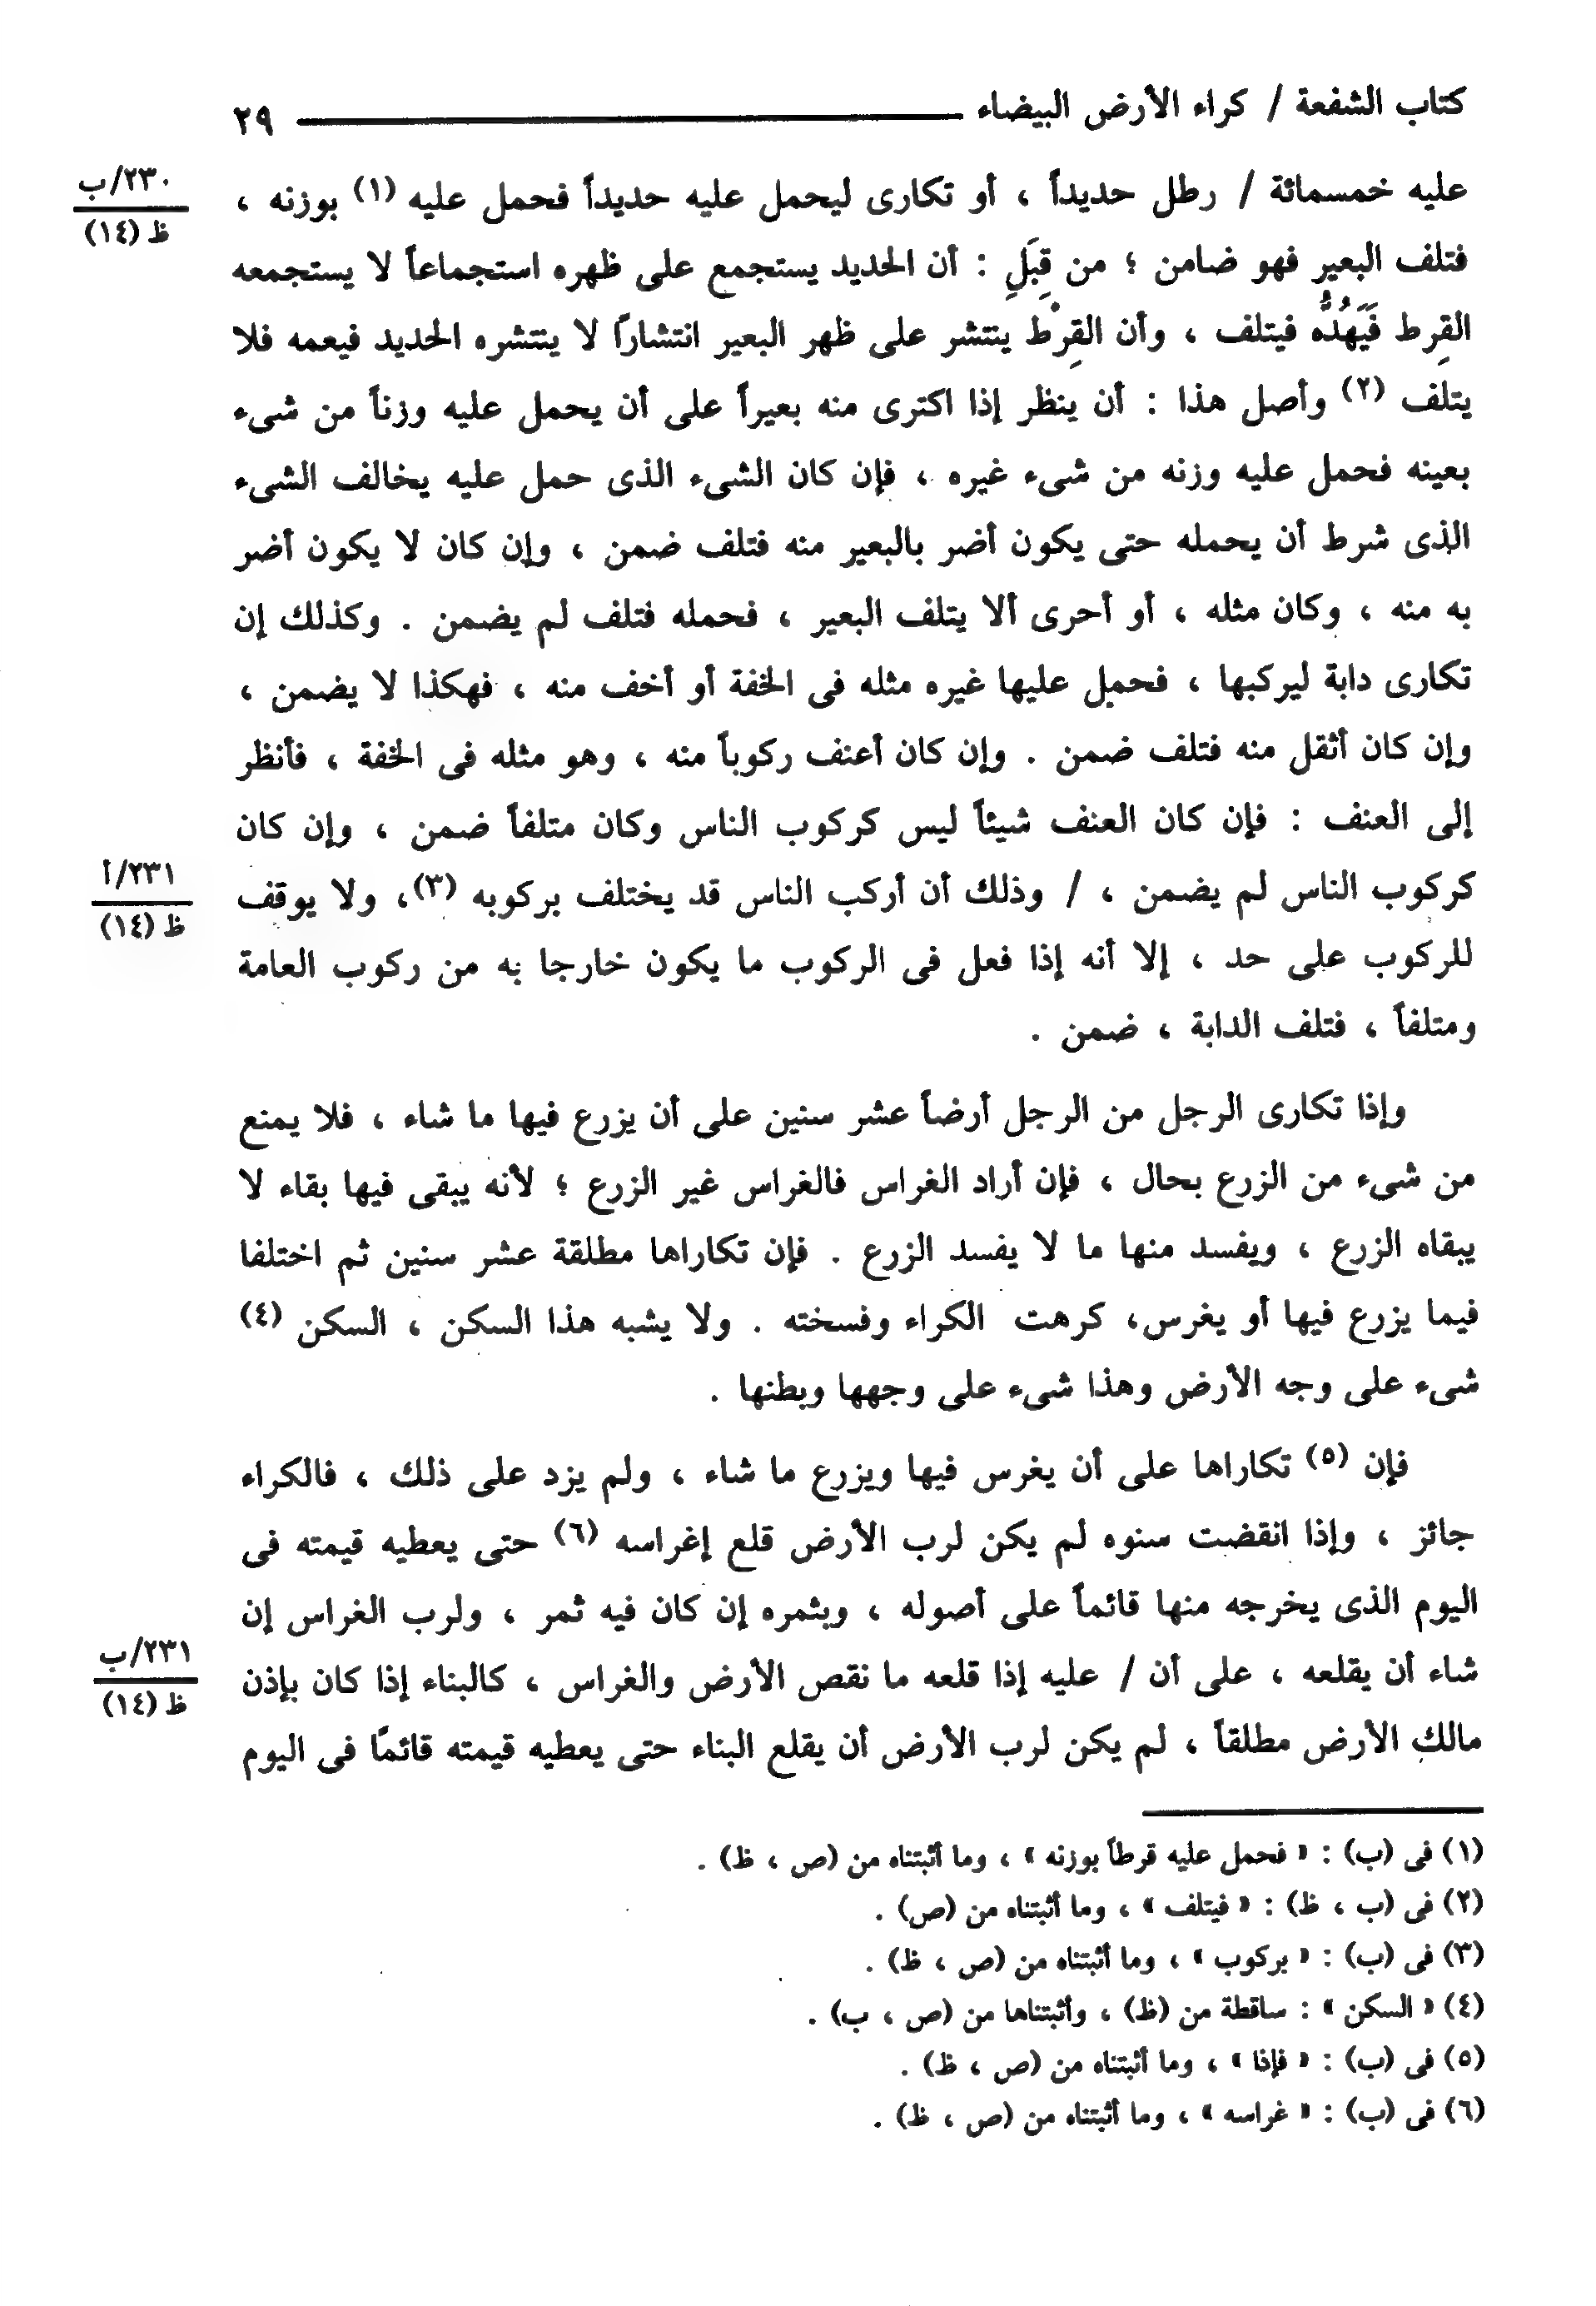 كتاب الشفعة / كراء الأرض البيضاء ــــــــــ ٢٩
٢٣٠/ب
ظ (١٤)
عليه خمسمائة / رطل حديداً ، أو تكارى ليحمل عليه حديداً فحمل عليه (١) بوزنه ،
فتلف البعير فهو ضامن ؛ من قِبَلِ : أن الحديد يستجمع على ظهره استجماعاً لا يستجمعه
القِرط فَيَهُدُّه فيتلف ، وأن القِرْط ينتشر على ظهر البعير انتشاراً لا ينتشره الحديد فيعمه فلا
يتلف (٢) وأصل هذا : أن ينظر إذا اكترى منه بعيراً على أن يحمل عليه وزناً من شىء
بعينه فحمل عليه وزنه من شىء غيره ، فإن كان الشىء الذى حمل عليه يخالف الشىء
الذى شرط أن يحمله حتى يكون أضر بالبعير منه فتلف ضمن ، وإن كان لا يكون أضر
به منه ، وكان مثله ، أو أحرى ألا يتلف البعير ، فحمله فتلف لم يضمن . وكذلك إن
تكارى دابة ليركبها ، فحمل عليها غيره مثله فى الخفة أو أخف منه ، فهكذا لا يضمن ،
وإن كان أثقل منه فتلف ضمن . وإن كان أعنف ركوباً منه ، وهو مثله فى الخفة ، فأنظر
إلى العنف : فإن كان العنف شيئاً ليس كركوب الناس وكان متلفاً ضمن ، وإن كان
٢٣١/أ
ظ (١٤)
كركوب الناس لم يضمن ، / وذلك أن أركب الناس قد يختلف بركوبه (٣)، ولا يوقف
للركوب على حد ، إلا أنه إذا فعل فى الركوب ما يكون خارجا به من ركوب العامة
ومتلفاً ، فتلف الدابة ، ضمن .
وإذا تكارى الرجل من الرجل أرضاً عشر سنين على أن يزرع فيها ما شاء ، فلا يمنع
من شىء من الزرع بحال ، فإن أراد الغراس فالغراس غير الزرع ؛ لأنه يبقى فيها بقاء لا
يبقاه الزرع ، ويفسد منها ما لا يفسد الزرع . فإن تكاراها مطلقة عشر سنين ثم اختلفا
فيما يزرع فيها أو يغرس، كرهت الكراء وفسخته . ولا يشبه هذا السكن ، السكن (٤)
شىء على وجه الأرض وهذا شىء على وجهها وبطنها .
فإن (٥) تكاراها على أن يغرس فيها ويزرع ما شاء ، ولم يزد على ذلك ، فالكراء
جائز ، وإذا انقضت سنوه لم يكن لرب الأرض قلع إغراسه (٦) حتى يعطيه قيمته فى
اليوم الذى يخرجه منها قائماً على أصوله ، وبثمره إن كان فيه ثمر ، ولرب الغراس إن
٢٣١/ب
ظ (١٤)
شاء أن يقلعه ، على أن / عليه إذا قلعه ما نقص الأرض والغراس ، كالبناء إذا كان بإذن
مالك الأرض مطلقاً ، لم يكن لرب الأرض أن يقلع البناء حتى يعطيه قيمته قائمًا فى اليوم
(١) فى (ب) : « فحمل عليه قرطاً بوزنه » ، وما أثبتناه من (ص ، ظ) .
(٢) فى (ب ، ظ) : « فيتلف » ، وما أثبتناه من (ص) .
(٣) فى (ب) : « بركوب » ، وما أثبتناه من (ص ، ظ) .
(٤) « السكن » : ساقطة من (ظ) ، وأثبتناها من (ص ، ب) .
(٥) فى (ب) : « فإذا » ، وما أثبتناه من (ص ، ظ) .
(٦) فى (ب) : « غراسه » ، وما أثبتناه من (ص ، ظ) .